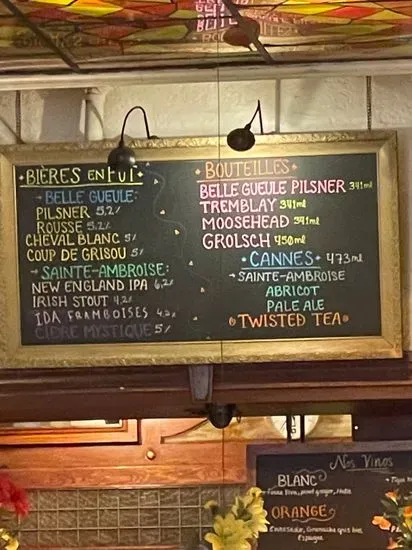 •BIÈRES EN FUT•
→ BELLE GUEULE:
PILSNER 5,2%
ROUSSE 5,2%
CHEVAL BLANC 5%
COUP DE GRISOU 5%
→ SAINTE-AMBROISE:
NEW ENGLAND IPA 6,2%
IRISH STOUT 4,2%
IDA FRAMBOISES 4,2%
CIDRE MYSTIQUE 5%
•BOUTEILLES•
BELLE GUEULE PILSNER 341ml
TREMBLAY 341ml
MOOSEHEAD 341ml
GROLSCH 450ml
•CANNES• 473ml
→ SAINTE-AMBROISE
ABRICOT
PALE ALE
•TWISTED TEA•
Nos Vinos
BLANC
ORANGE
Espagne